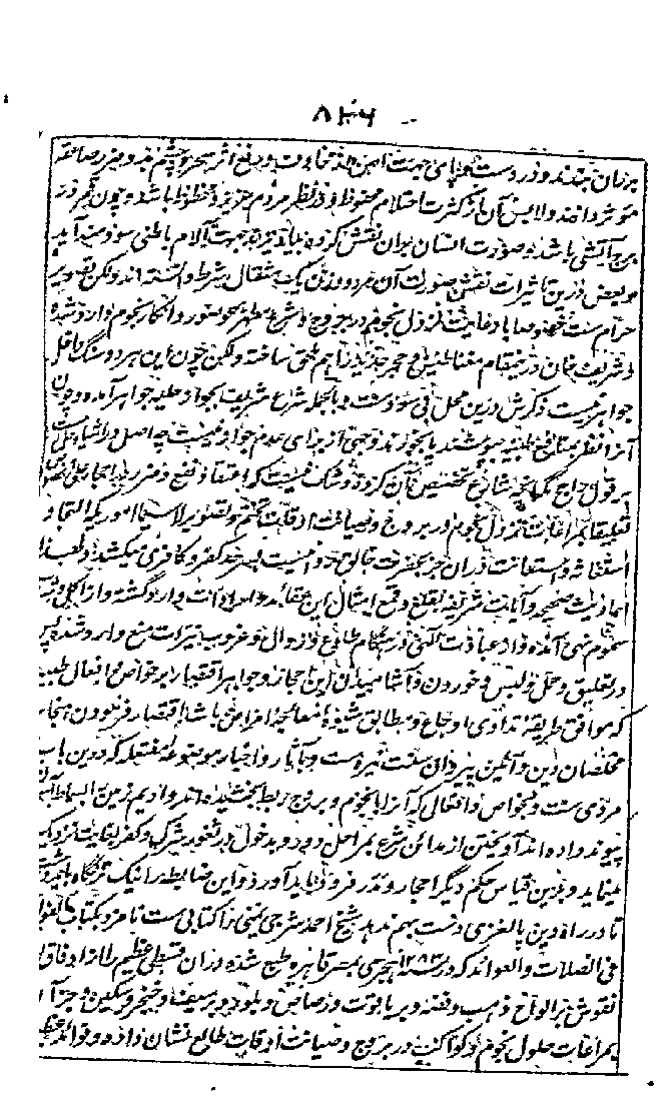 ۸۳۶
بر ران بندند و درست
موثر دانند و لابس آن از کثرت احتلام محفوظ و در نظر مردم عزیز و محظوظ باشد و چون قمر در
برج آتشی باشد و صورت انسان بران نقش کرده بیاویزند جهت آلام باطنی سود مند آید
و بعض درین تاثیرات نقش صورت آن مرد و وزن یک مثقال شرط دانسته اند ولکن تصویر
حرام ست خصوصا با رعایت نزول نجوم در بروج و شرع مطهر بحو صور و انکار نجوم وارد شده
و شریف خان درین مقام مغناطیس و حجر حدید را هم ملحق ساخته ولکن چون این هر دو سنگ داخل
جواهر نیست ذکرش درین محل بی سود ست و بالجمله شرع شریف بجواز حلیه جواهر آمده و چون
آنرا نظر بمنافع طبیه بپوشند یا بخورند وجهی از برای عدم جواز نیست چه اصل در اشیا حل ست
بر قول راجح مگر آنچه شارع تخصیص آن کرده و شک نیست که اعتقاد نفع و ضرر باحجار
تعلیقا بمراعات نزول نجوم در بروج و صیانت اوقات تختم و تصویر لا سیما امور یکه التجا و
استغاثه و استعانت دران جز بحضرت خالق خود نیست بسرحد کفر و کافری میکشد و لهذا
احادیث صحیحه و آیات شریفه بقلع و قمع امثال این عقائد و ارادات وارد گشته و از اکل و
سموم نهی آمده و از عبادت الهی در هنگام طلوع و زوال و غروب نیرات منع وارد شده پس
در تعلیق و حمل و لبس و خوردن و آشامیدن این احجار و جواهر اقتصار بر خواص و افعال طبیه
که موافق طریقه تداوی اوجاع و مطابق شیوه معالجه امراض باشد اقتصار فرمودن هنجار
مخلصان دین و آئین پیروان سنت خیره ست و بآثار و اخبار موضوعه مفتعله که درین باب
مروی ست و بخواص و افعال که آنرا بانجوم و بروج ربط بخشیده اند و ادیم زمین
پیوند داده اند آویختن از مدائن شرع بمراحل دور و بدخول در ثغور شرک و کفر بغایت نزدیک
مینماید و برین قیاس حکم دیگر احجار و نذر فرو باید آورد و این ضابطه را نیک نگاه باید داشت
تا در راه دین پالغزی دست بهم ندهد شیخ احمد شرجی یمنی را کتابی ست نامزد بکتاب الفوائد
فی الصلات والعوائد که در سنه ۱۲۸۳ هجری بمصر قاهره طبع شده دران قسطی عظیم را از اوفاق
نقوش بر الواح ذهب و فضه و بر یاقوت و رصاص و بلور و بر سیف و خنجر و سکین و جز آن
بمراعات حلول نجوم و کواکب در بروج و صیانت اوقات طالع نشان داده و فوائد